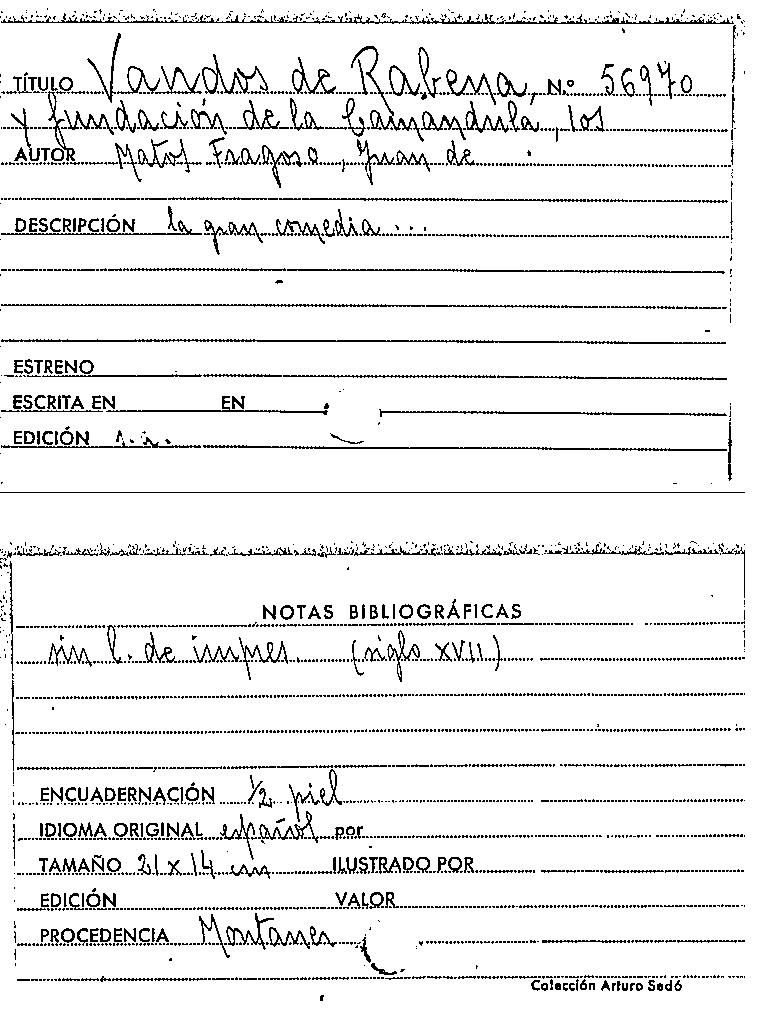 TÍTULO Vandos de Rabena, N.º 56970
y fundación de la Camandula, los
AUTOR Matos Fragoso, Juan de
DESCRIPCIÓN la gran comedia...
ESTRENO
ESCRITA EN EN
EDICIÓN s. a.
NOTAS BIBLIOGRÁFICAS
sin l. de impres. (siglo XVII)
ENCUADERNACIÓN 1/2 piel
IDIOMA ORIGINAL español por
TAMAÑO 21 x 14 cm ILUSTRADO POR
EDICIÓN VALOR
PROCEDENCIA Montaner
Colección Arturo Sedó